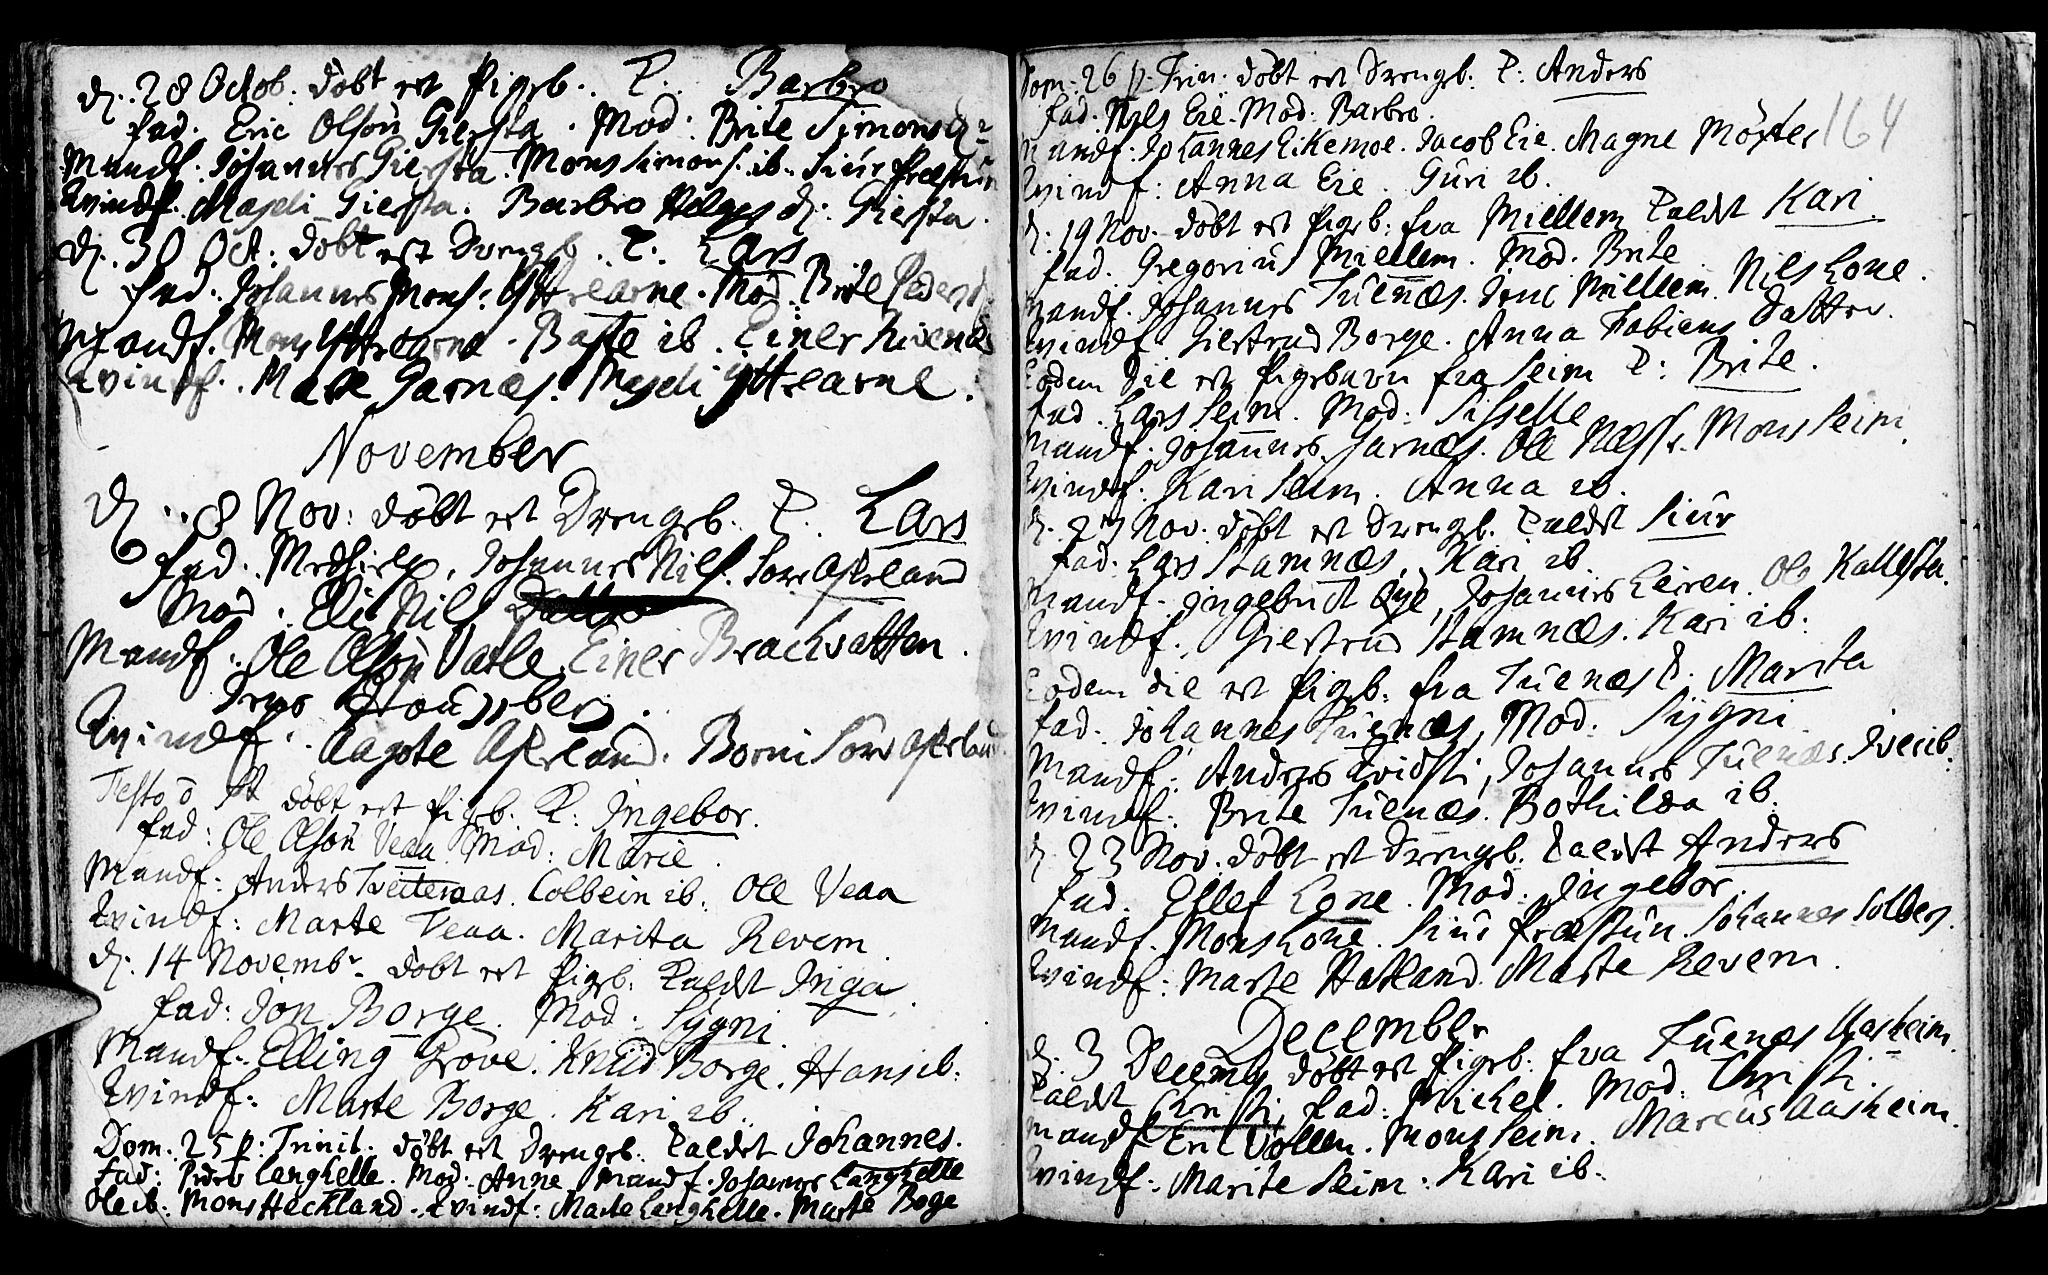 d. 28 Octob. döbt est Pigeb. K. Barbro
Fad. Eric Olson Giersta. Mod: Brite Simonsd.
Mandf. Johannes Giersta. Mons Simons. ib. Siur Præstun
Qvindf. Magdli Giersta. Barbro Helges d. Giersta.
d. 30 Oct: döbt est Drengeb. K. Lars
Fad. Johannes Mons: Yttrearne. Mod. Brite Peders d.
Mandf. Mons Yttrearne. Baste ib. Einer
Qvindf. Marte Garnæs. Magdli Yttrearne.
November
d. 8 Nov: döbt est Drengeb. K. Lars
Fad. Johannes Nils. Askeland
Mod. Eli Nils
Mandf. Ole Olson Vatle. Einer Brackvatten.
Qvindf. Aagote Askeland. Borni Askeland
Festo O St döbt est Pigeb. K. Ingebor.
Fad: Ole Olson Veaa Mod: Marie.
Mandf: Anders Tveiteraas. Colbein ib. Ole Veaa
Qvindf: Marte Veaa. Marita Revem.
d. 14 Novembr. döbt est Pigeb. Kaldt Inga.
Fad: Jon Borge. Mod: Sygni.
Mandf. Elling Grove. Knud Borge. Hans ib.
Qvindf. Marte Borge. Kari ib.
Dom. 25 p: Trinit. döbt est Drengeb. Kaldet Johannes.
Fad: Peder Langhelle. Mod. Anne Mandf. Johannes Langhelle
Ole ib. Mons Heckland. Qvindf: Marte Langhelle. Marte Boge
Dom: 26 p. Trin: döbt est Drengb. K: Anders
164
Fad. Niels Eie. Mod: Barbro.
Mandf. Johannes Eikemoe. Jacob Eie. Magne Möster
Qvindf: Anna Eie. Guri ib.
d. 19 Nov. döbt est Pigeb: fra Miellem Kaldt Kari.
Fad. Gregorius Miellem. Mod. Brite.
Mandf. Johannes Tuenæs. Miellem. Nils Lone.
Qvindf. Giertrud Borge. Anna Fabians Datter.
Eodem die est Pigebarn fra Seim K: Brite.
Fad. Lars Seim. Mod: Sisselle
Mandf. Johannes Garnæs. Ole Næsse. Mons Seim.
Qvindf. Kari Seim. Anna ib.
d. 21 Nov. döbt est Drengb. Kaldt Siur
Fad. Lars Stamnæs, Kari ib.
Mandf. Ingebrict Øye, Johannes Leiren. Ole Kallesta.
Qvindf. Giertrud Stamnæs. Kari ib.
Eodem die est Pigeb. fra Tuenæs K. Marita
Fad. Johannes Tuenæs, Mod. Sygni
Mandf. Anders Qvidsti, Johannes Tuenæs. Iver ib.
Qvindf: Brite Tuenæs. Bothilda ib.
d. 23 Nov. döbt est Drengeb. Kaldt Anders
Fad. Ellef Lone. Mod. Ingebor.
Mandf. Mons Lone. Siur Præstun. Johannes Solberg.
Qvindf: Marte Hatland. Marte Revem.
December
d. 3 Decembr döbt est Pigeb. fra Tuenæs Aasheim.
Kaldt Cristi, Fad: Michel. Mod: Christi.
Mandf Eric Vollen. Mons Seim. Marcus Aasheim.
Qvindf. Marite Seim. Kari ib.